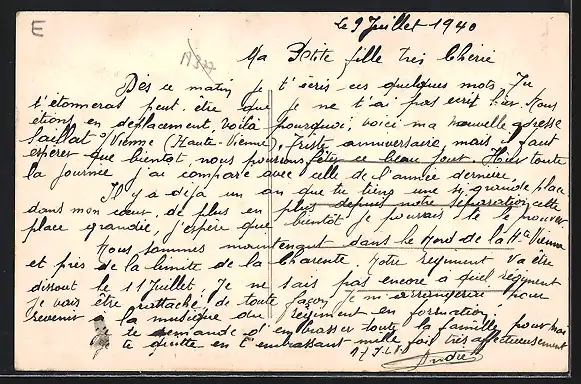 E
Le 9 Juillet 1940
Ma Petite fille très Chérie
Dès ce matin je t'écris ces quelques mots. Tu
t'étonneras peut être que je ne t'ai pas écrit hier. Nous
étions en déplacement, voilà pourquoi; voici ma nouvelle adresse
Saillat s/Vienne (Haute-Vienne), triste anniversaire, mais il faut
espérer que bientôt, nous pourrons fêter ce beau jour. Hier toute
la journée j'ai comparé avec celle de l'année dernière.
Il y a déjà un an que tu tiens une si grande place
dans mon cœur, de plus en plus depuis notre séparation, cette
place grandie, j'espère que bientôt je pourrais te le prouver.
Nous sommes maintenant dans le Nord de la Hte Vienne
et près de la limite de la Charente. Notre régiment va être
dissout le 11 Juillet. Je ne sais pas encore à quel régiment
je vais être rattaché de toute façon je m'arrangerai pour
revenir à la musique du régiment en formation.
Je te demande d'embrasser toute la famille pour moi
te quitte en t'embrassant mille fois très affectueusement
André